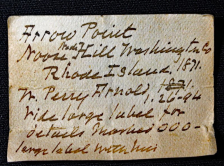 Arrow Point
Hill Washington Co
Rhode Island, 1871.
W. Perry Arnold, 1.26.94
Vide large label for
details marked 000 -
large label with this